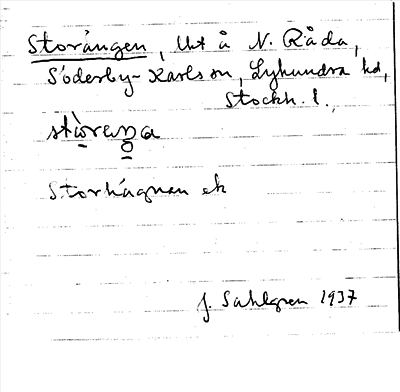 Storängen, Ut å N. Råda,
Söderby-Karlson, Lyhundra hd,
Stockh. l.,
Storhägnan ek
J. Sahlgren 1937